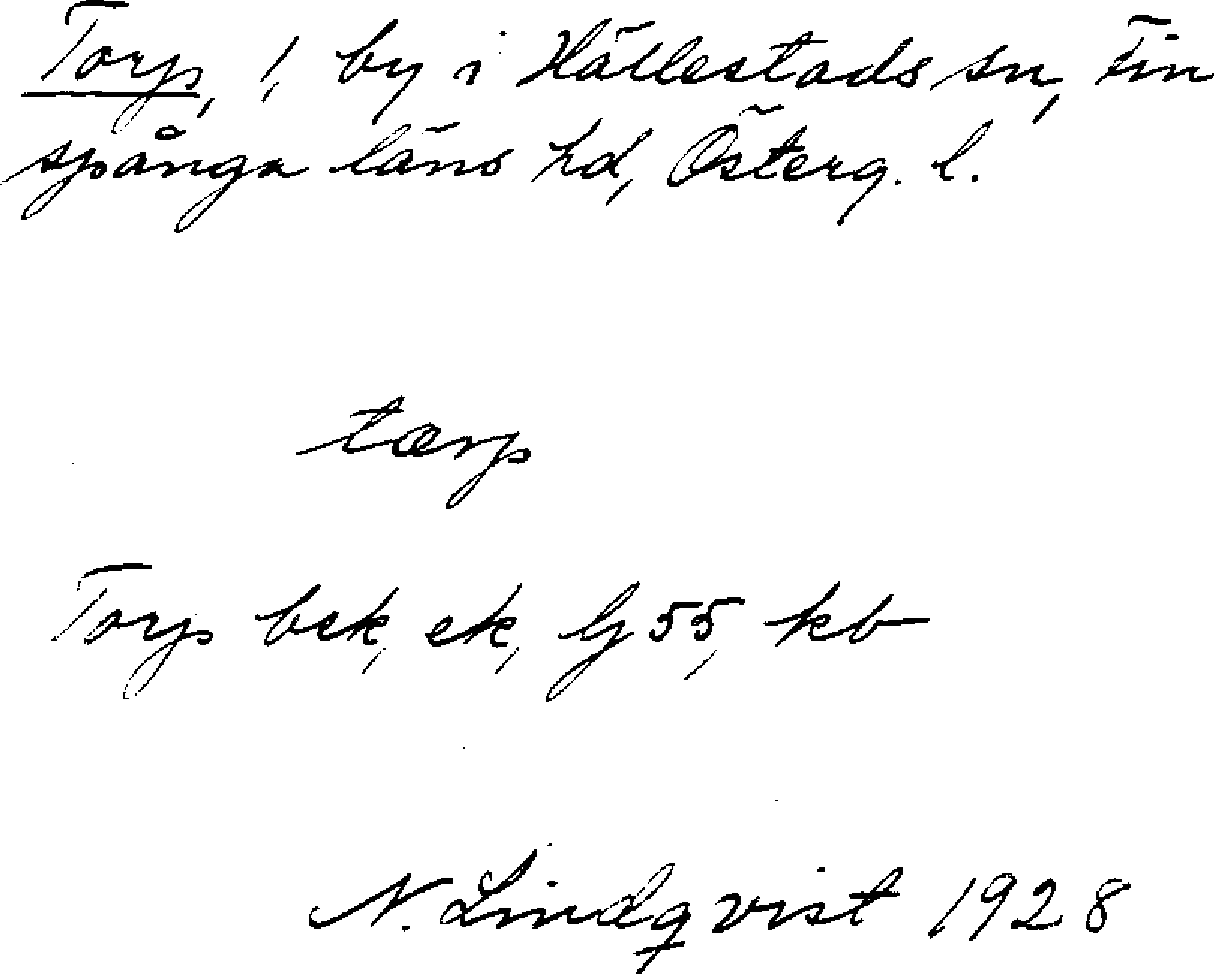 Torp, 1, by i Hällestads sn, Fin
spånga läns hd, Österg. l.
tærp
Torp bek, ek, Gj 55, kb
N. Lindqvist 1928